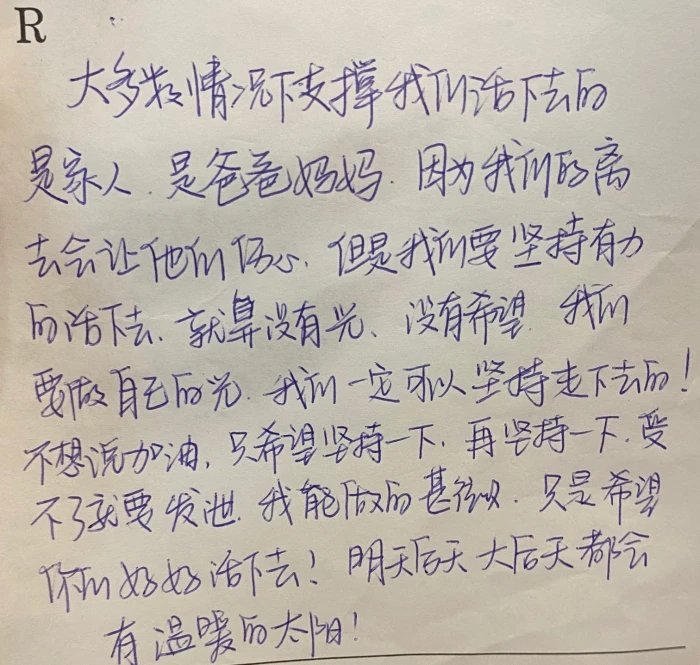 R
大多数情况下支撑我们活下去的
是家人.是爸爸妈妈.因为我们的离
去会让他们伤心.但是我们要坚持有力
的活下去、就算没有光、没有希望.我们
要做自己的光.我们一定可以坚持走下去的!
不想说加油,只希望坚持一下,再坚持一下.受
不了就要发泄.我能做的甚微.只是希望
你们好好活下去!明天后天大后天都会
有温暖的太阳!